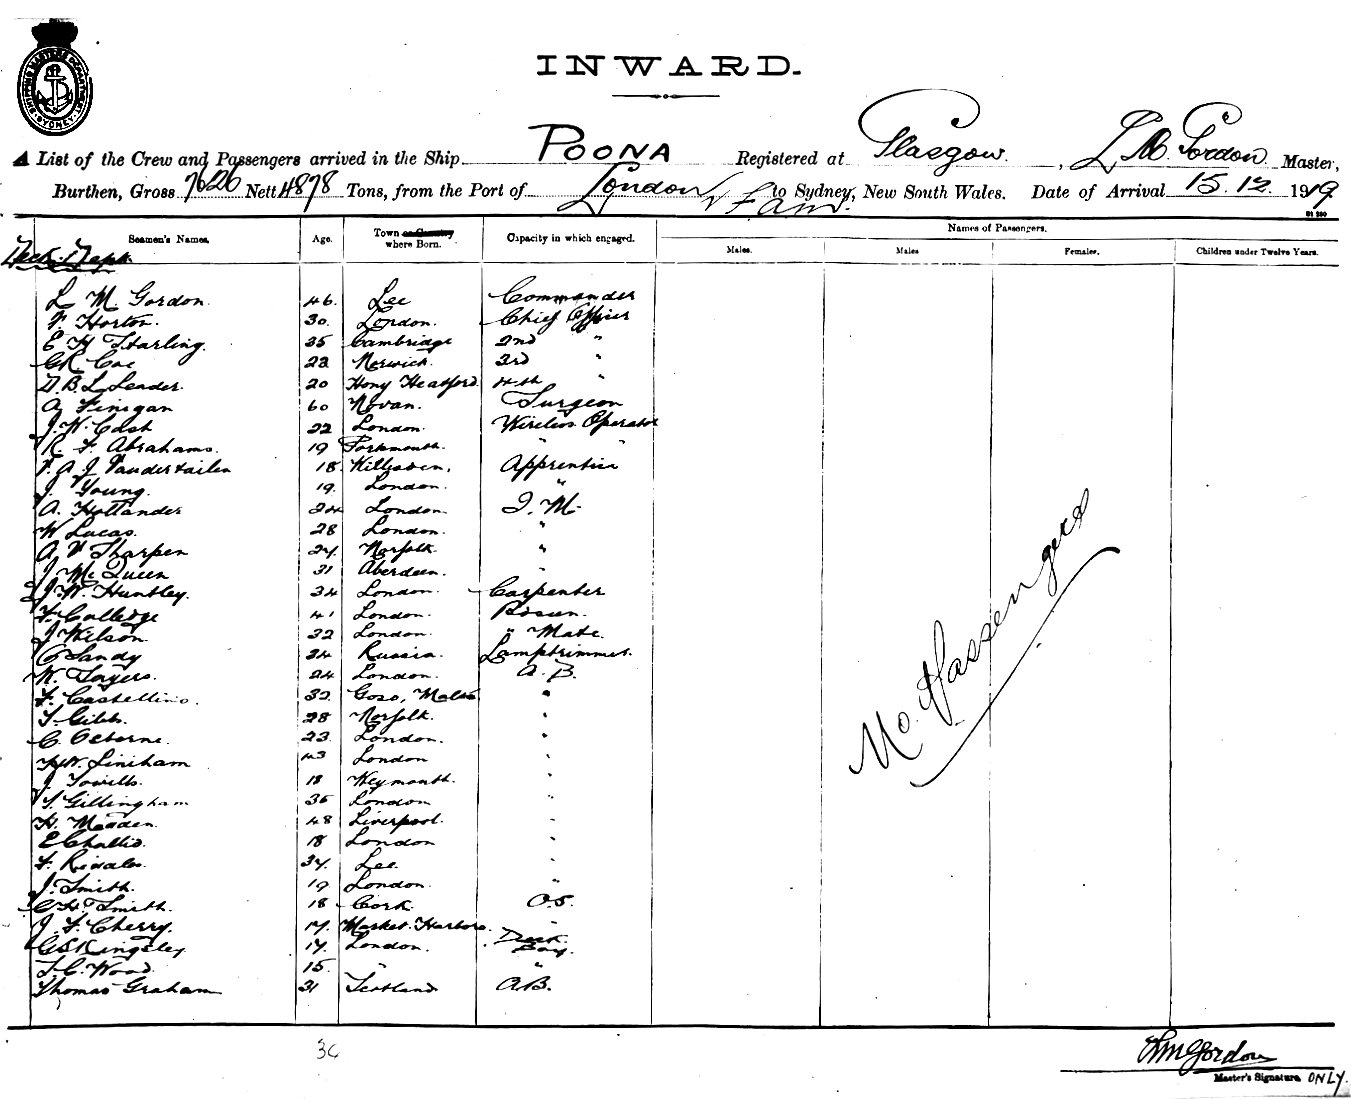 INWARD.
SHIPPING MASTERS DEPARTMENT SYDNEY
A List of the Crew and Passengers arrived in the Ship POONA Registered at Glasgow, L M Gordon Master,
Burthen, Gross 7626 Nett 4878 Tons, from the Port of London to Sydney, New South Wales. Date of Arrival 15.12.1919
Seamen's Names. Age. Town or Country where Born. Capacity in which engaged. Names of Passengers.
Males. Males Females. Children under Twelve Years.
Deck Dept
L M Gordon. 46. Lee Commander
F Horton. 30. London. Chief Officer
E H Starling. 35 Cambridge 2nd "
G R Coe 23 Norwich. 3rd "
D. B. L Leader. 20 4th "
A Finigan 60 Novan. Surgeon
J. W. Cash 22 London. Wireless Operator
R F Abrahams. 19 Portsmouth. " "
F. A J 18. Apprentice
J. Young. 19. London. "
A. Hollander 24 London. Q. M.
W Lucas. 28 London. "
A V Tharpen 27. Norfolk. "
J McQueen 31 Aberdeen. "
J. W. Huntley. 34 London. Carpenter
F. Colledge 41 London. Bosun.
J Wilson. 32 London. " Mate.
C Sandy 34 Russia. Lamptrimmer.
W. Sayers. 24 London. A. B.
F. Castellino. 32 Gozo, Malta "
T. Gibbs. 28 Norfolk. "
C. Osborne. 23. London. "
H. W. Liniham 43 London "
J. Towills. 18 Weymouth. "
S. Gillingham 35 London "
H. Madden. 48 Liverpool. "
E Challis. 18 London "
F. 37. Lee. "
J. Smith. 19 London. "
C H. Smith. 18 Cork O.S.
J. F. Cherry. 17. Market Harboro. "
G S Kingsley 17. London. Deck Boy.
T. C. Wood. 15. " "
Thomas Graham 31 Scotland A.B.
No Passengers
36
L M Gordon
Master's Signature ONLY.